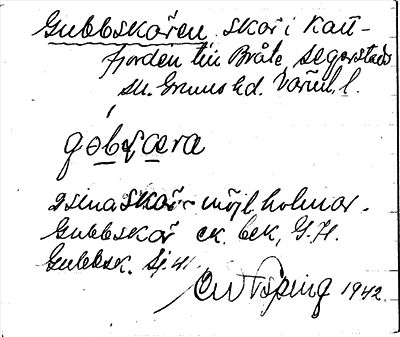 Gubbskären skär i Katt-
fjorden till Bråte Segerstads
sn. Grums hd. Värml. l.
gəbʃæra
2 små skär - möjl. holmar.
Gubbskär ek. bek. G. H.
Gubbsk. Sj. 41.
1942.